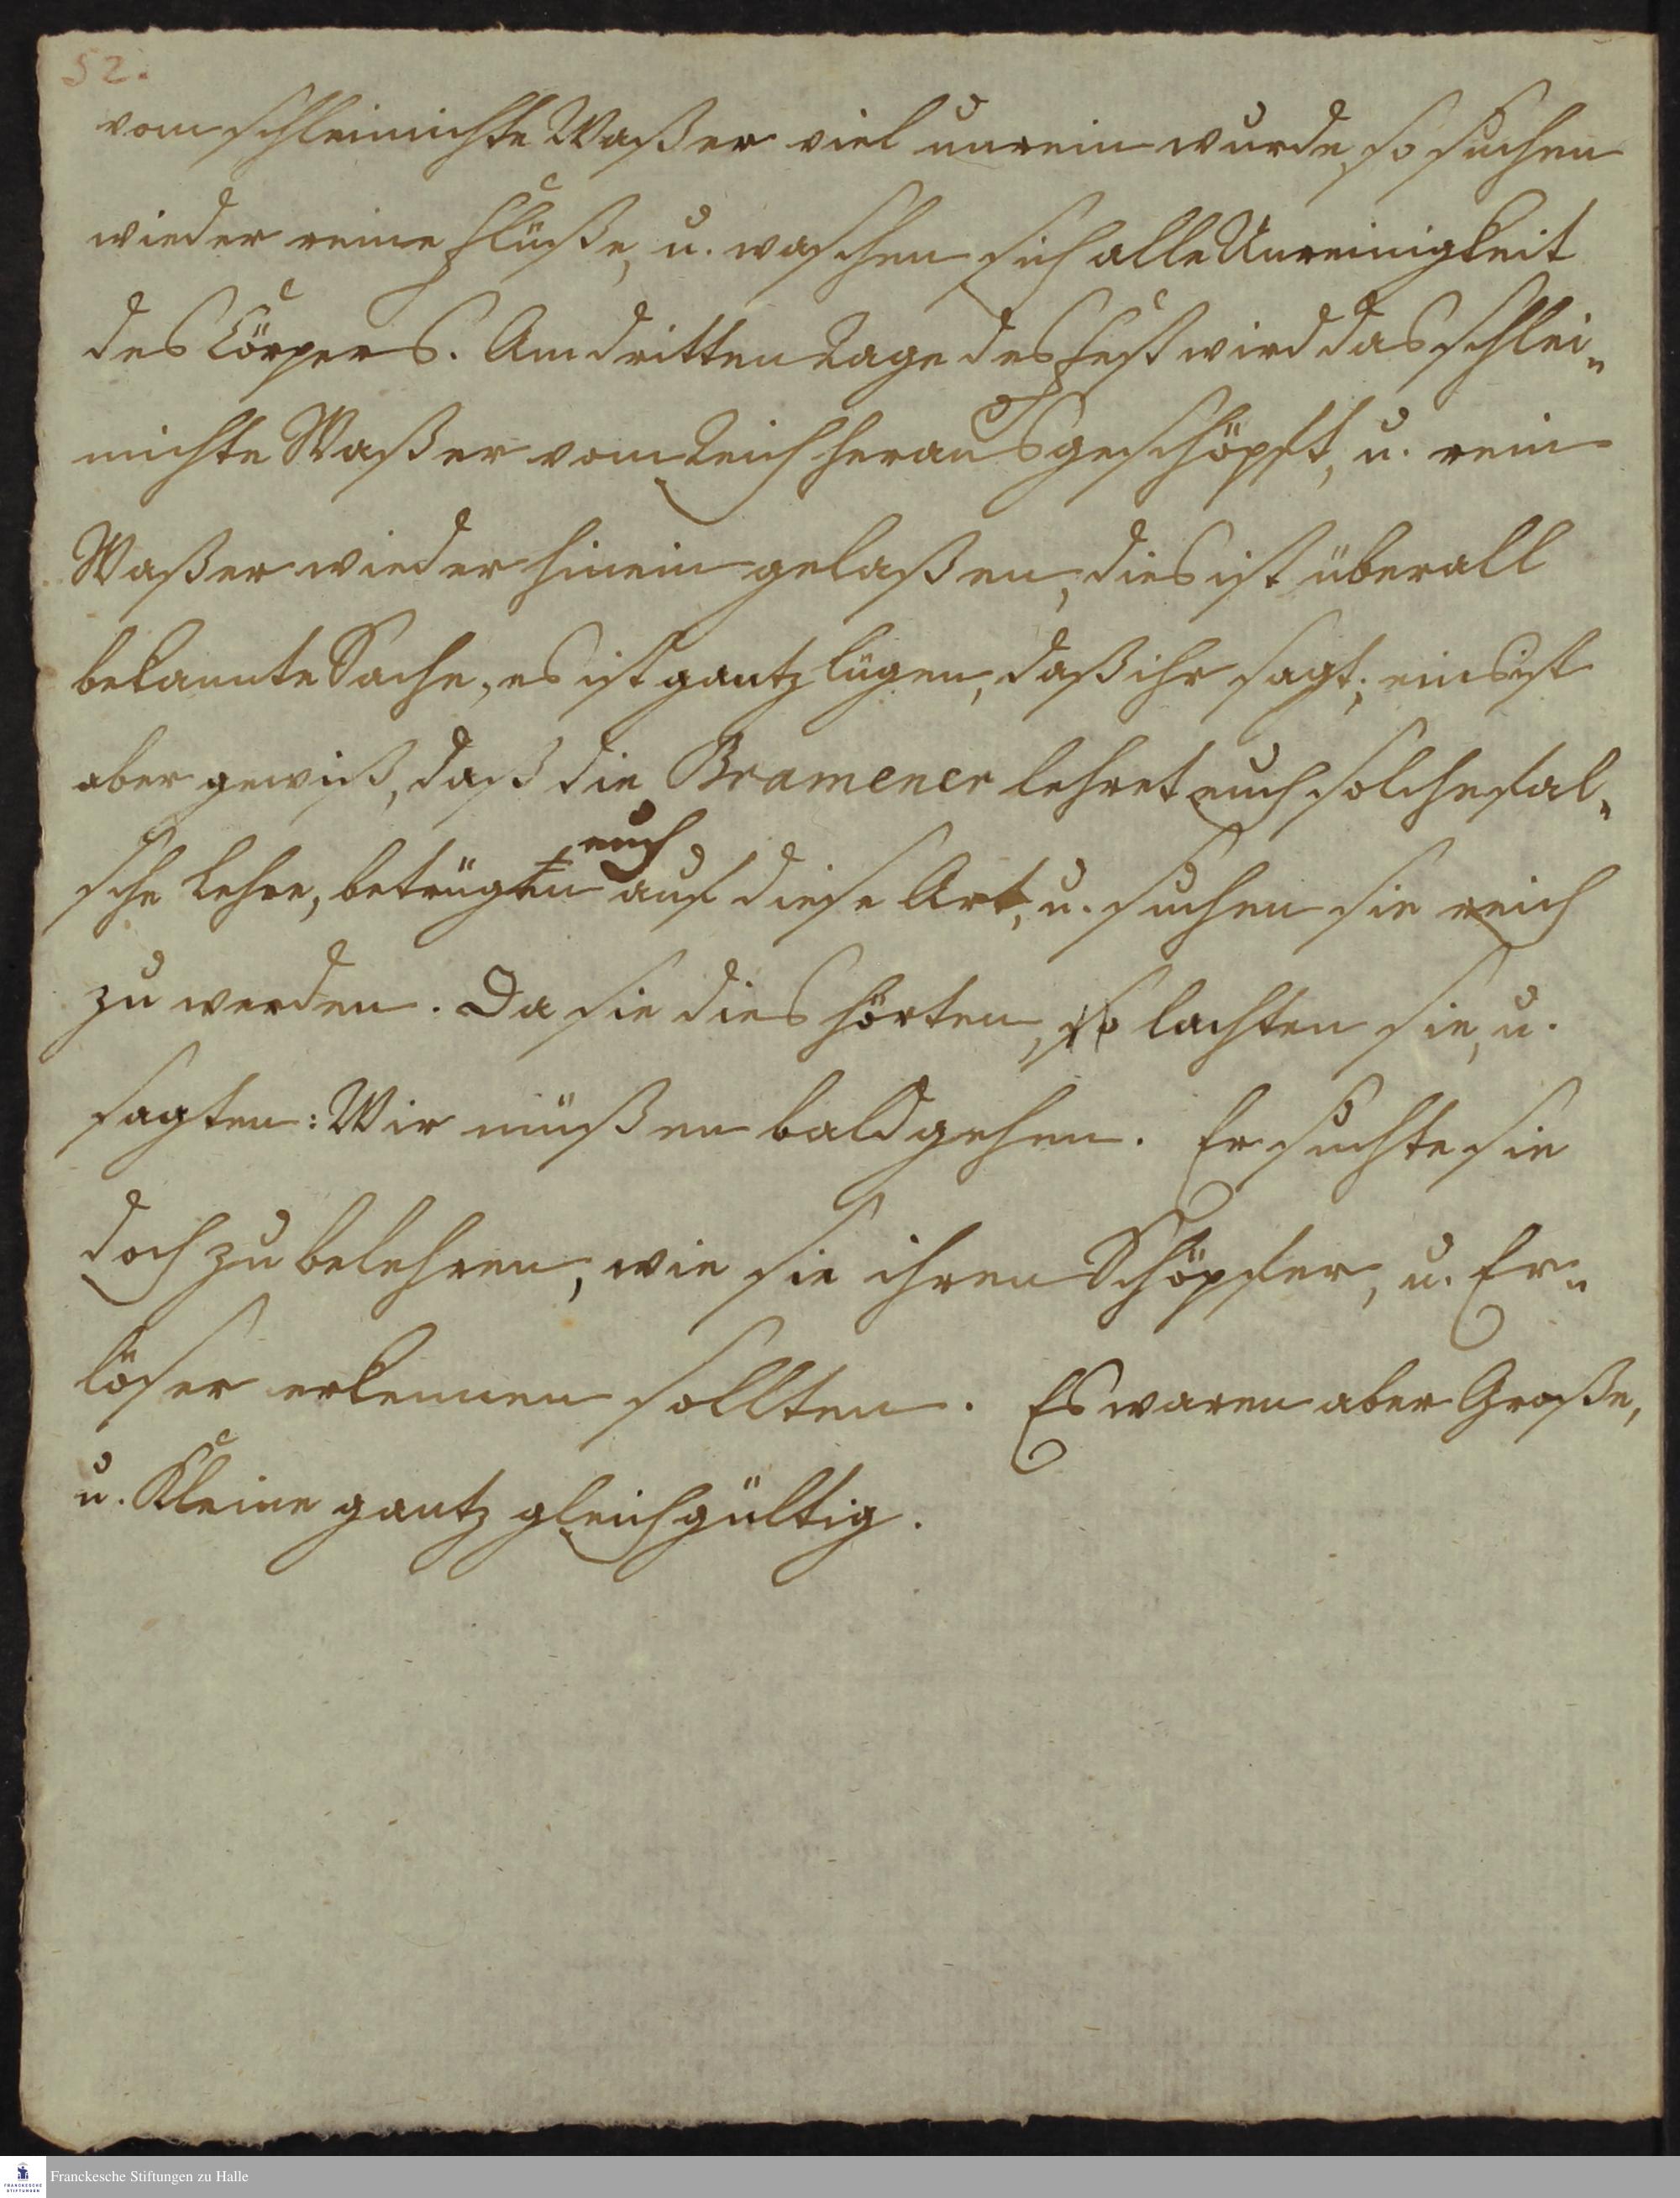 52.
vom schleimichte Waßer viel unrein wurde, so suchen
wieder reine Flüße, u. waschen sich alle Unreinigkeit
des Cörpers. Am dritten Tage des Fest wird das schlei„
michte Waßer vom Teich heraus geschöpft, u. rein
Waßer wieder hinein gelaßen, dies ist überall
bekannte Sache, es ist gantz lügen, daß ihr sagt; eins ist
aber gewiß, daß die Bramener lehret euch solche fal„
sche Lehre, betrügen euch auf diese Art, u. suchen sie reich
zu werden. Da sie dies hörten, so lachten sie, u.
sagten: Wir müßen bald gehen. Er suchte sie
doch zu belehren, wie sie ihren Schöpfer, u. Er„
löser erkennen sollten. Es waren aber Große,
u. Kleine gantz gleichgültig.
Franckesche Stiftungen zu Halle
FRANCKESCHE
STIFTUNGEN